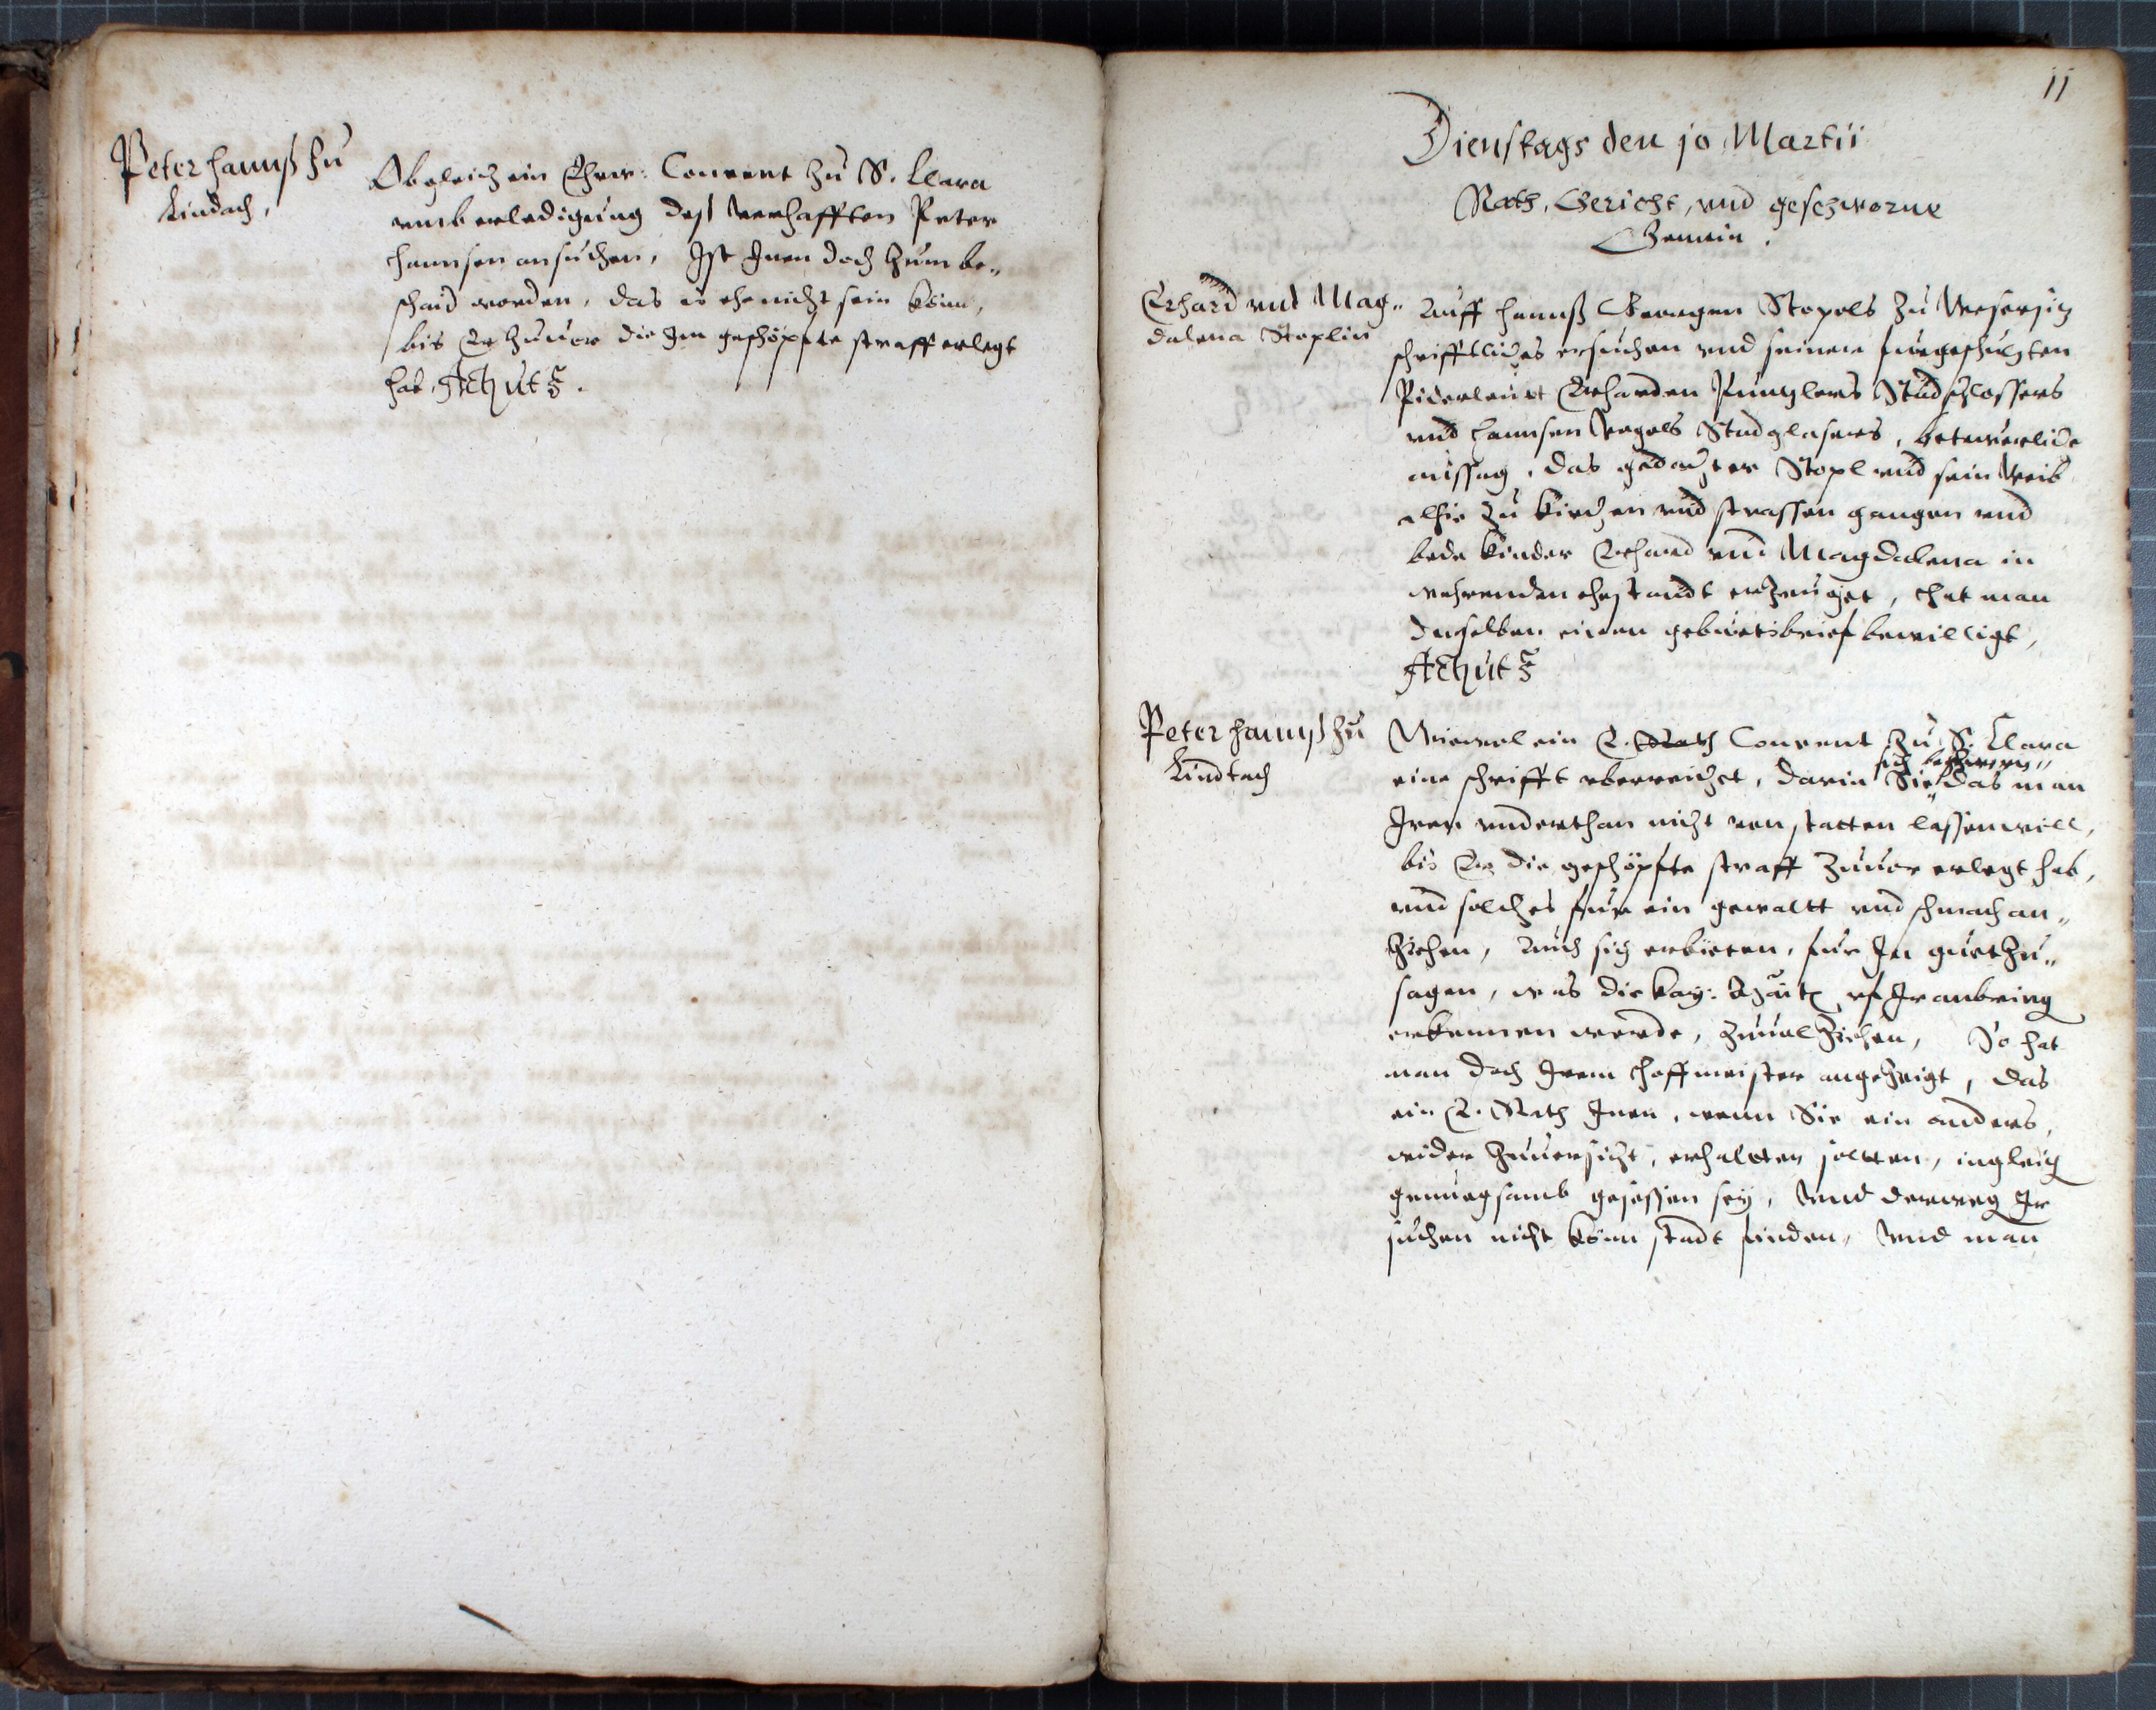 Peter hannß zu
Lindach,
Obgleich ein Ehrw: Convent zu S. Clara
umb erledigung deß verhafften Peter
hannsen ansuchen, Ist Inen doch zum be„
schaid worden, das es ehe nicht sein könn,
bis Er zuuor die Im geschöpfte straff erlegt
hab, Act. ut s.
11
Dienstags den 10 Martii
Rath, Gericht, und geschworne
Gemein.
Erhard und Mag„
dalena Stoplin
Auff hannß Georgen Stopels zu
schrifftliches ersuchen und seiner furgeschulzten
Piderleut Erharden Stadschlossers
und hannsen Vogels Stadglasers, betewrliche
aussag, das gedachter Stopl und sein Weib
alhie zu kirchen und strassen gangen und
bede kinder Erhard und Magdalena in
wehrenden ehestandt erzeuget, hat man
denselben einen geburtsbrief bewilligt,
Act. ut s.
Peter hannß zu
Lindtach
Wiewol ein E. Rath Convent zu S. Clara
sich beschweren„
eine schrifft uberreichet, darin Sie das man
Iren underthan nicht von statten lassen will,
bis Er die geschöpfte straff zuuor erlegt hab,
und solches fur ein gewaltt und schmach an„
ziehen, Auch sich erbieten, fur In guet zu„
sagen, was die kay: Mayt. uf Ir anbring
erkennen werde, zuuolziehen, So hat
man doch Irem hoffmeister angezeigt, das
ein E. Rath Inen, wann Sie ein anders,
wider zuuersicht, erhaltten soltten, ingleich
genuegsamb gesessen sey, Und derweg Ir
suchen nicht könn stadt finden, Und man